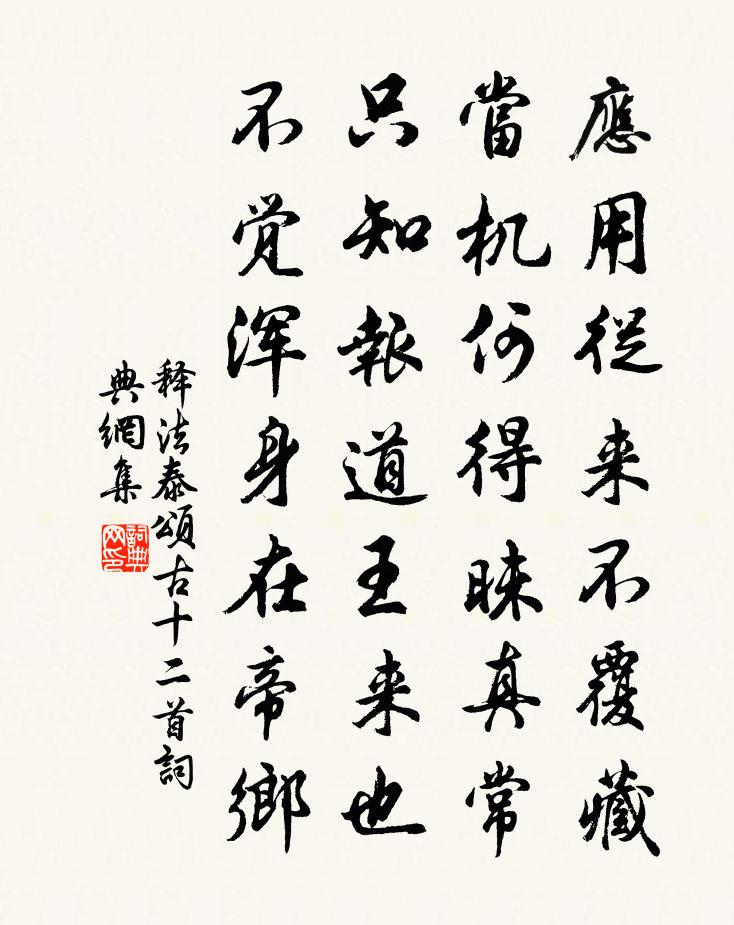 應用從来不覆藏
當机何得昧真常
只知報道王来也
不觉浑身在帝鄉
释法泰頌古十二首詞
典網集
詞典
网印